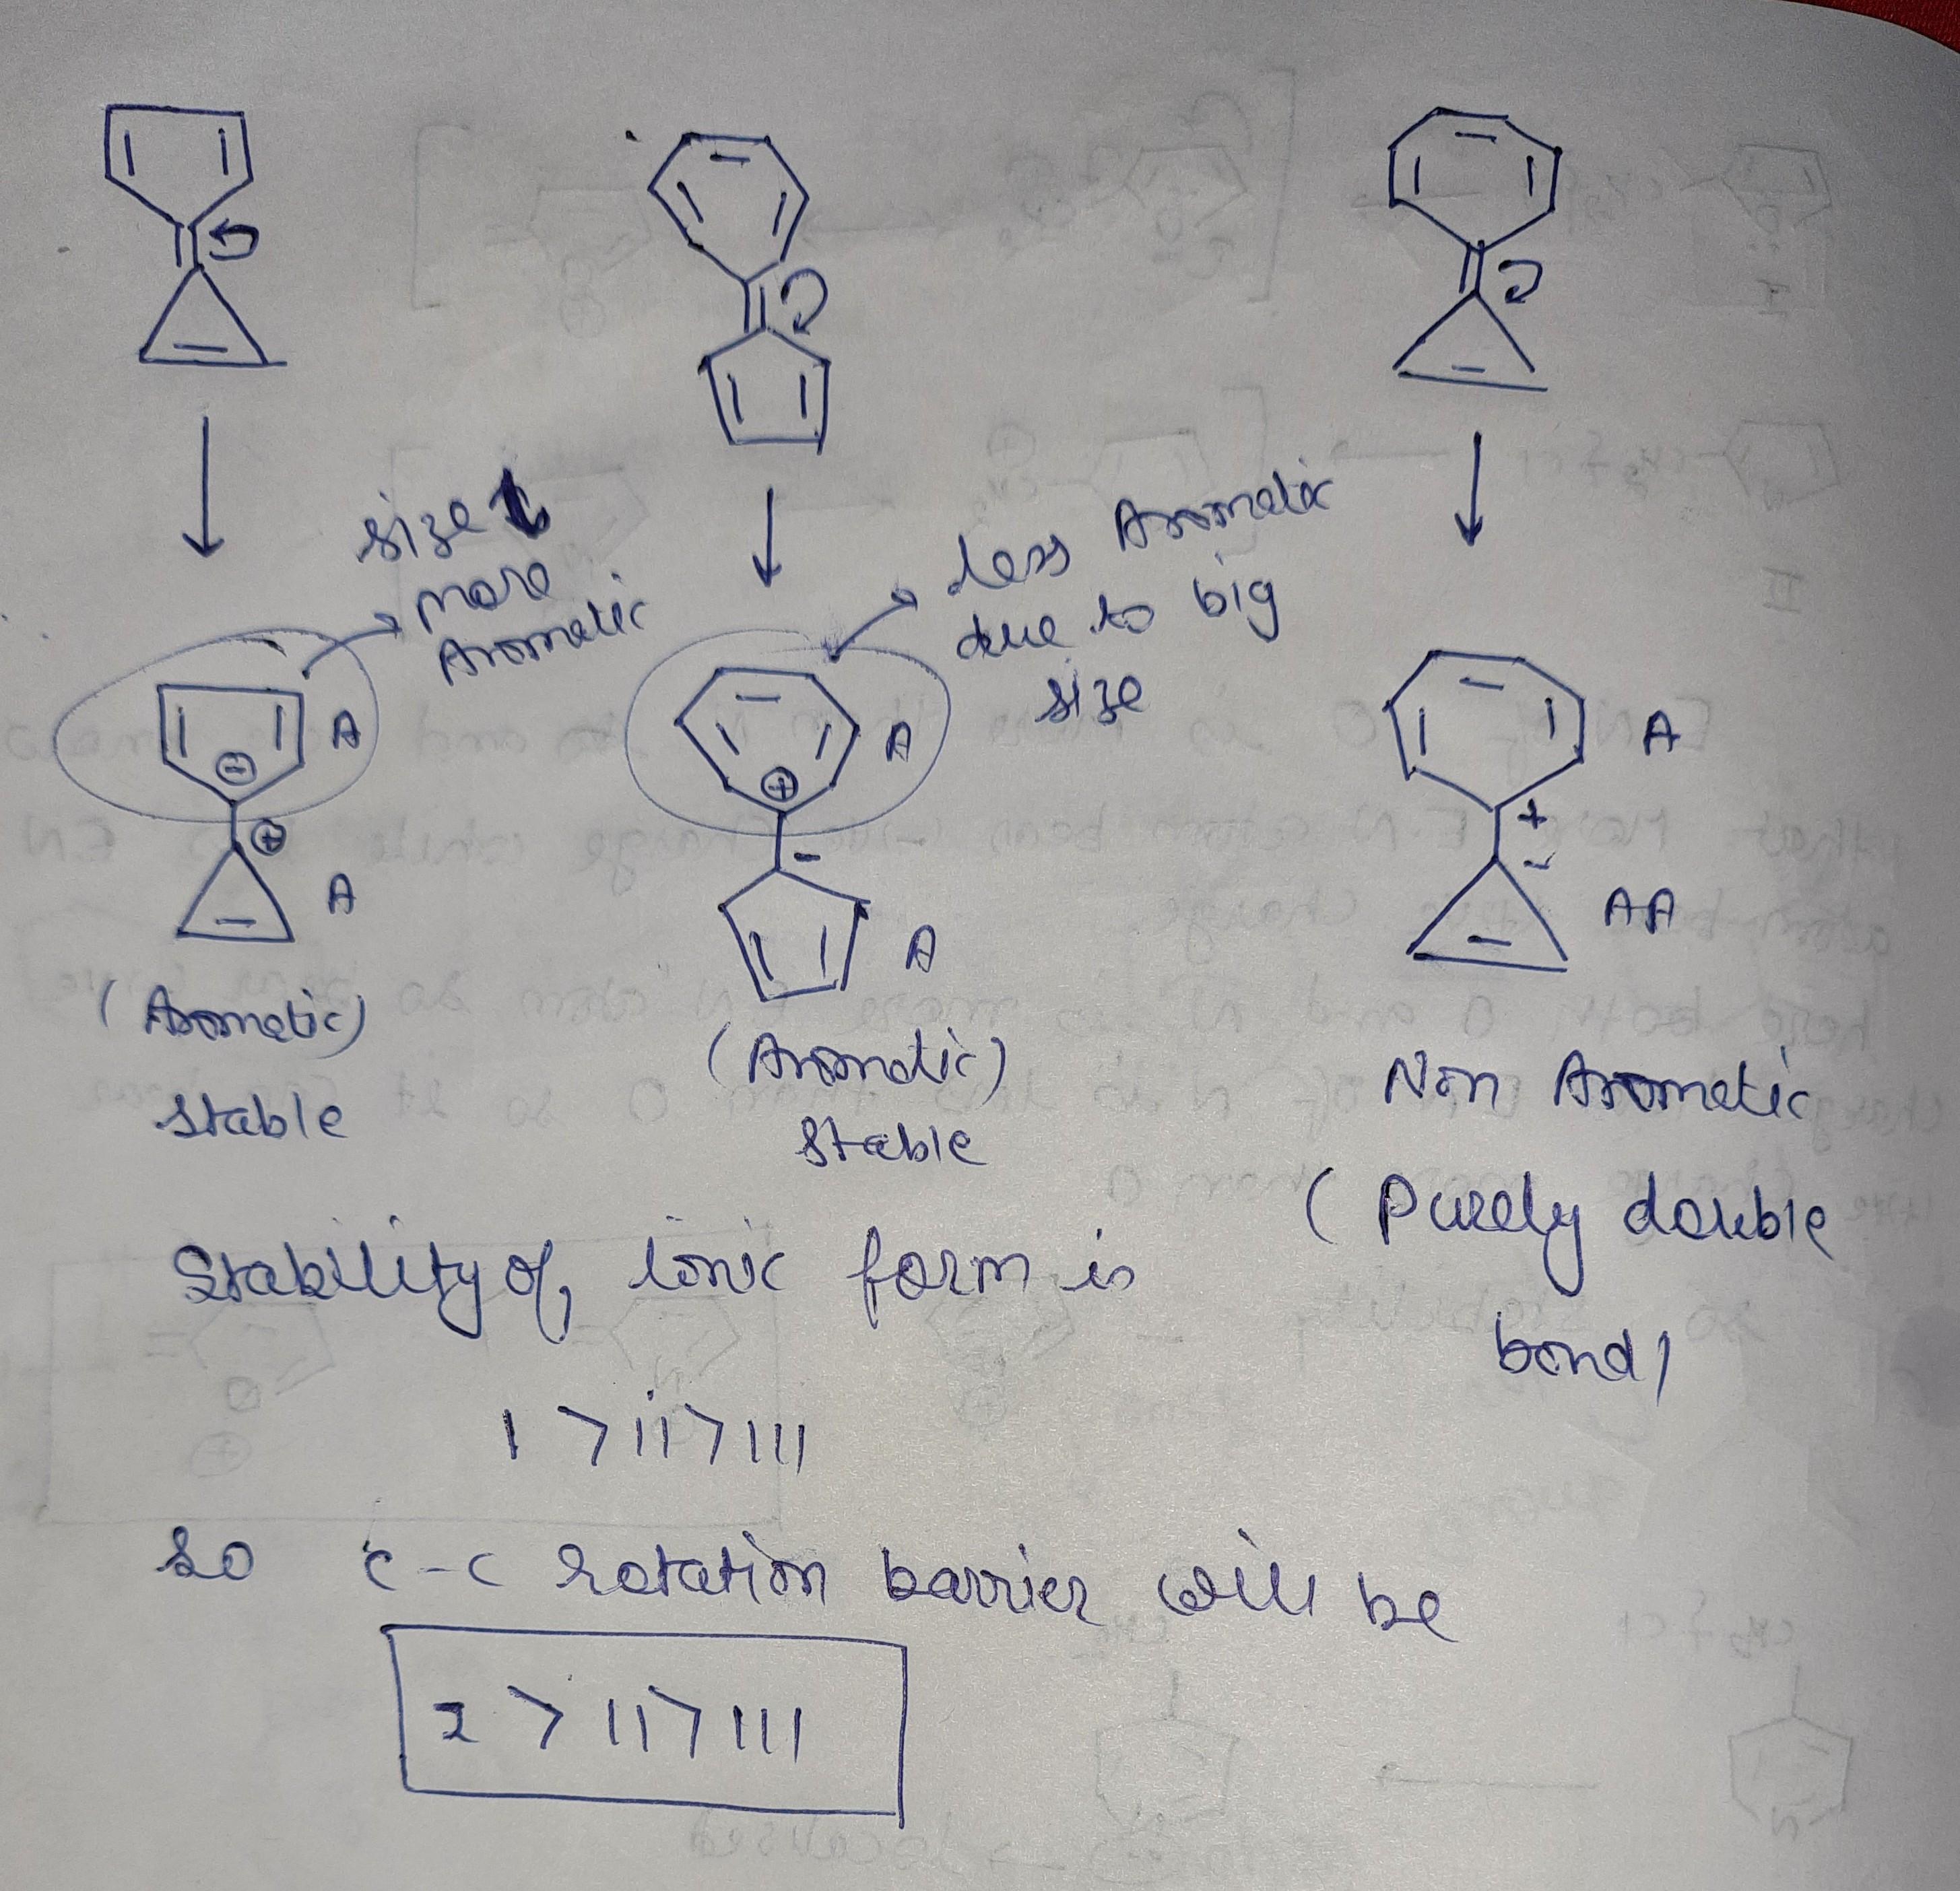 size ↓
more
Aromatic
less Aromatic
due to big
size
A
⊖
⊕
A
A
⊕
-
A
A
+
-
AA
(Aromatic)
stable
(Aromatic)
stable
Non Aromatic
(Purely double
bond)
Stability of, ionic form is
I > II > III
so c-c rotation barrier will be
I > II > III